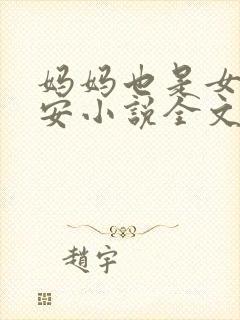 妈妈也是女
安小说全文
趙宇